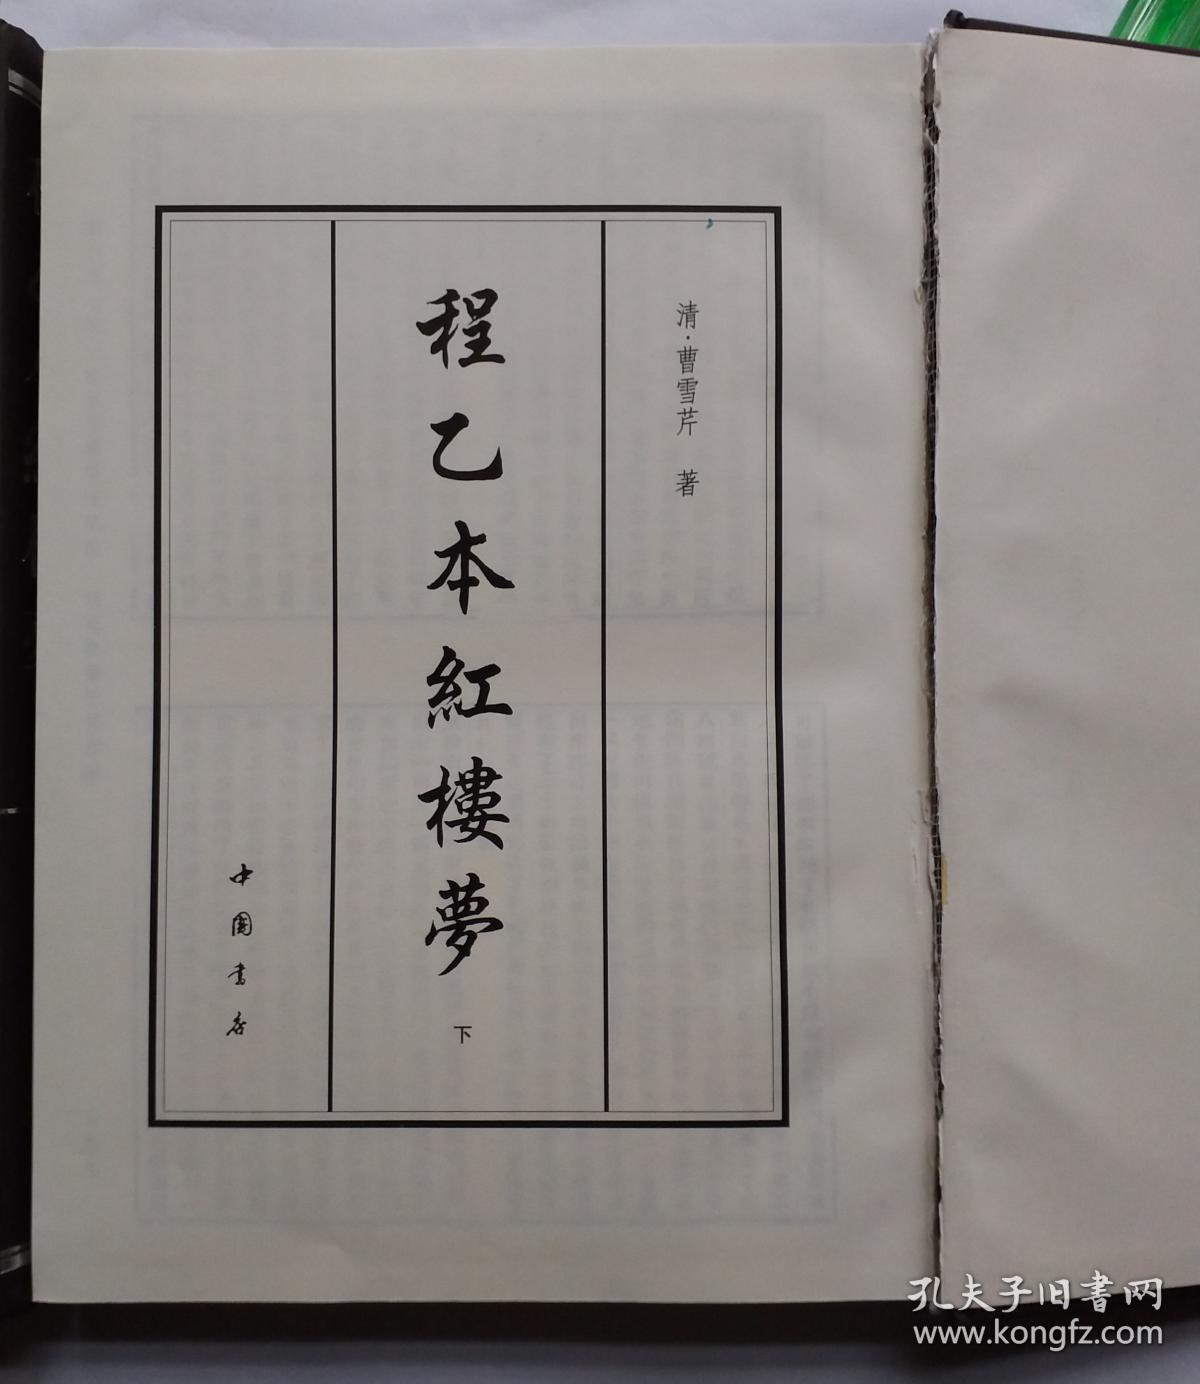 清·曹雪芹 著
程乙本紅樓夢 下
中國書店
孔夫子旧書网
www.kongfz.com